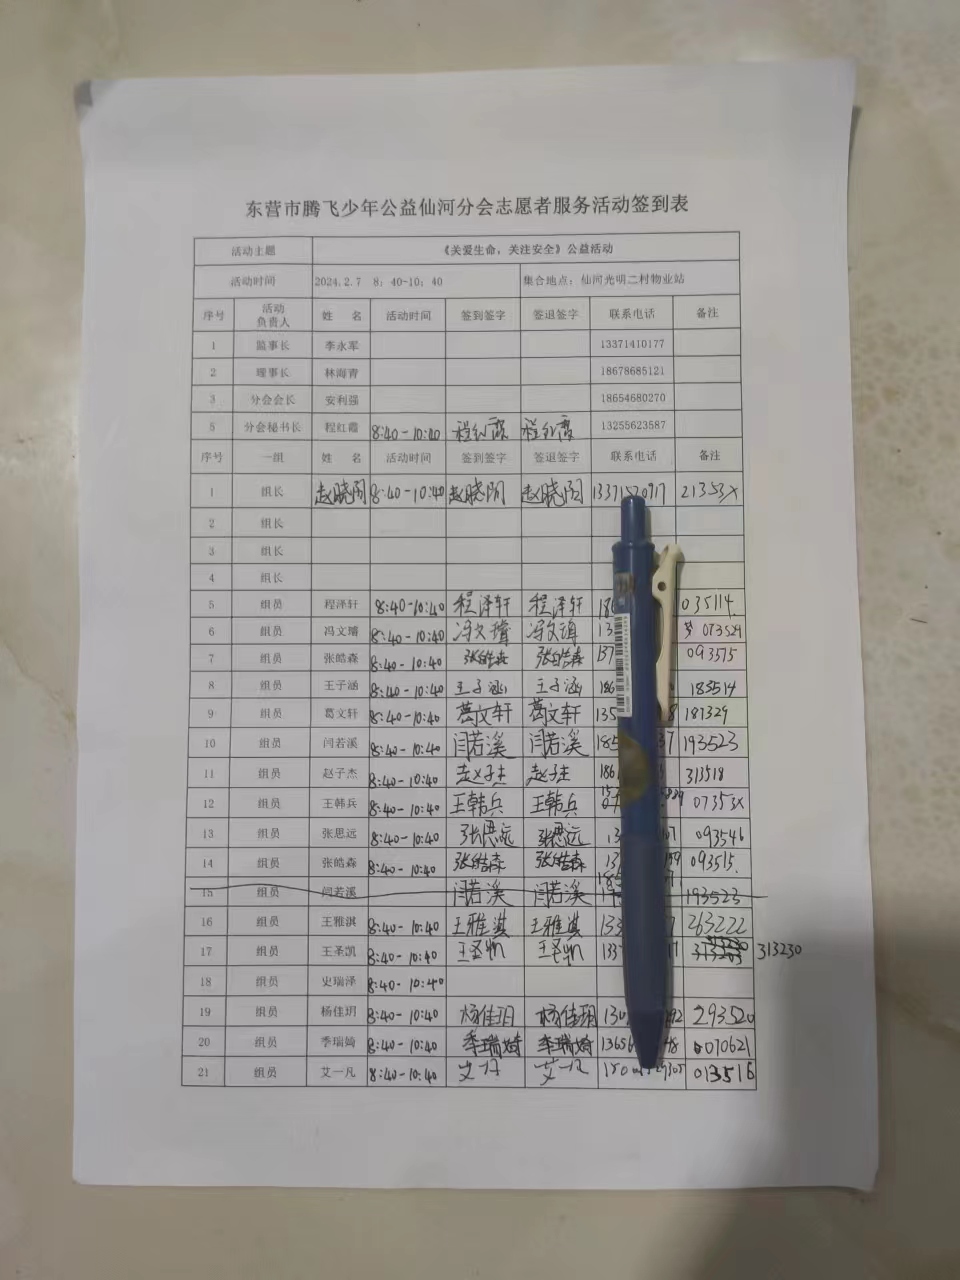 东营市腾飞少年公益仙河分会志愿者服务活动签到表
活动主题 《关爱生命,关注安全》公益活动
活动时间 2024.2.7 8:40-10:40 集合地点:仙河光明二村物业站
序号 活动负责人 姓 名 活动时间 签到签字 签退签字 联系电话 备注
1 监事长 李永军 13371410177
2 理事长 林海青 18678685121
3 分会会长 安利强 18654680270
5 分会秘书长 程红霞 8:40-10:40 程红霞 程红霞 13255623587
序号 一组 姓 名 活动时间 签到签字 签退签字 联系电话 备注
1 组长 赵晓阳 8:40-10:40 赵晓阳 赵晓阳 21353X
2 组长
3 组长
4 组长
5 组员 程泽轩 8:40-10:40 程泽轩 程泽轩 035114
6 组员 冯文瑄 8:40-10:40 073529
7 组员 张皓森 8:40-10:40 张皓森 张皓森 137 093515
8 组员 王子涵 8:40-10:40 王子涵 王子涵 186 183514
9 组员 葛文轩 8:40-10:40 葛文轩 葛文轩 135 8 187329
10 组员 闫若溪 8:40-10:40 闫若溪 闫若溪 185 37 193523
11 组员 赵子杰 8:40-10:40 赵子杰 赵子杰 186 313518
12 组员 王韩兵 8:40-10:40 王韩兵 王韩兵 07353X
13 组员 张思远 8:40-10:40 张思远 张思远 093546
14 组员 张皓森 8:40-10:40 张皓森 张皓森 093515
15 组员 闫若溪 闫若溪 闫若溪 193523
16 组员 王雅淇 8:40-10:40 王雅淇 王雅淇 133 263222
17 组员 王圣凯 8:40-10:40 王圣凯 王圣凯 133 17 313230
18 组员 史瑞泽 8:40-10:40
19 组员 杨佳玥 8:40-10:40 杨佳玥 杨佳玥 130 293520
20 组员 季瑞婍 8:40-10:40 季瑞婍 季瑞婍 070621
21 组员 艾一凡 8:40-10:40 艾一凡 013516